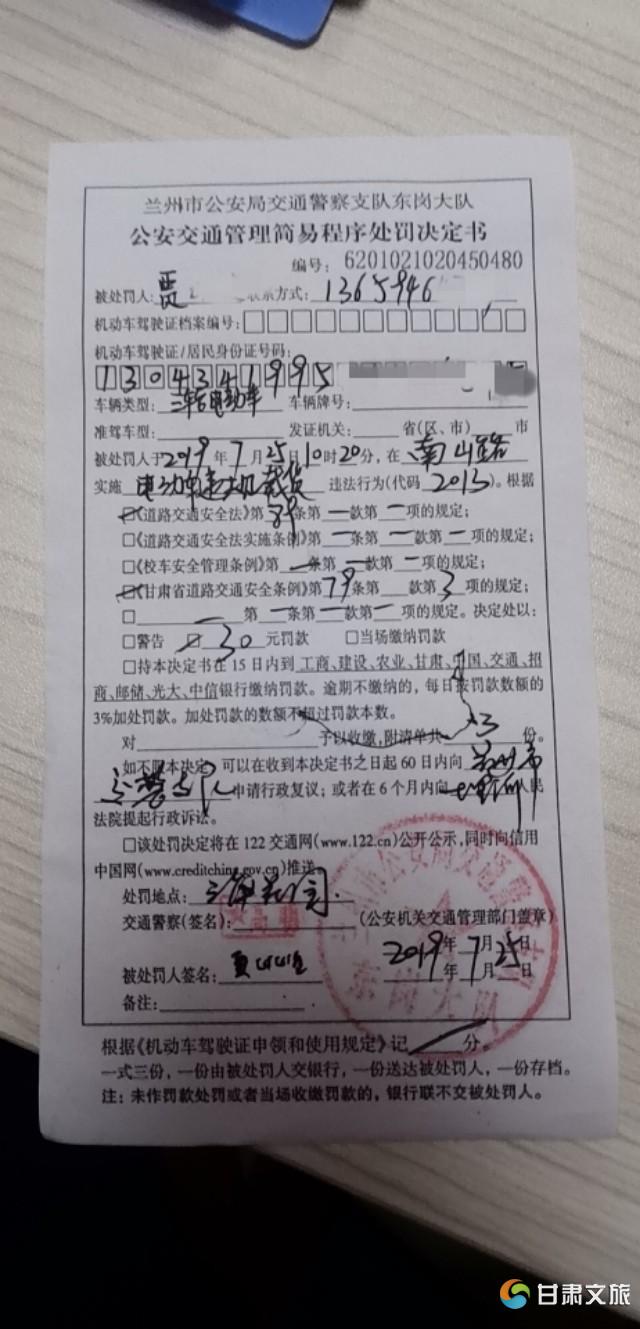 兰州市公安局交通警察支队东岗大队
公安交通管理简易程序处罚决定书
编号: 6201021020450480
被处罚人: 贾 联系方式: 1365946
机动车驾驶证档案编号:
机动车驾驶证/居民身份证号码:
1304341995
车辆类型: 三轮电动车 车辆牌号:
准驾车型: 发证机关: 省(区、市) 市
被处罚人于2019年7月25日10时20分, 在 南山路
实施 电动车 载货 违法行为(代码 2013)。根据
☑《道路交通安全法》第89条第一款第一项的规定;
□《道路交通安全法实施条例》第一条第一款第一项的规定;
□《校车安全管理条例》第一条第一款第一项的规定;
☑《甘肃省道路交通安全条例》第79条第 款第3项的规定;
□ 第一条第一款第一项的规定。决定处以:
□警告 ☑30元罚款 □当场缴纳罚款
□持本决定书在15日内到工商、建设、农业、甘肃、中国、交通、招
商、邮储、光大、中信银行缴纳罚款。逾期不缴纳的, 每日按罚款数额的
3%加处罚款。加处罚款的数额不超过罚款本数。
对 予以收缴, 附清单共 份。
如不服本决定, 可以在收到本决定书之日起60日内向 兰州市
申请行政复议; 或者在6个月内向 人民
法院提起行政诉讼。
□该处罚决定将在122交通网(www.122.cn)公开公示, 同时向信用
中国网(www.creditching.gov.cn)推送。
处罚地点:
交通警察(签名): (公安机关交通管理部门盖章)
2019年7月25日
被处罚人签名: 贾 年 月 日
备注:
根据《机动车驾驶证申领和使用规定》记 分。
一式三份, 一份由被处罚人交银行, 一份送达被处罚人, 一份存档。
注: 未作罚款处罚或者当场收缴罚款的, 银行联不交被处罚人。
东岗大队
甘肃文旅